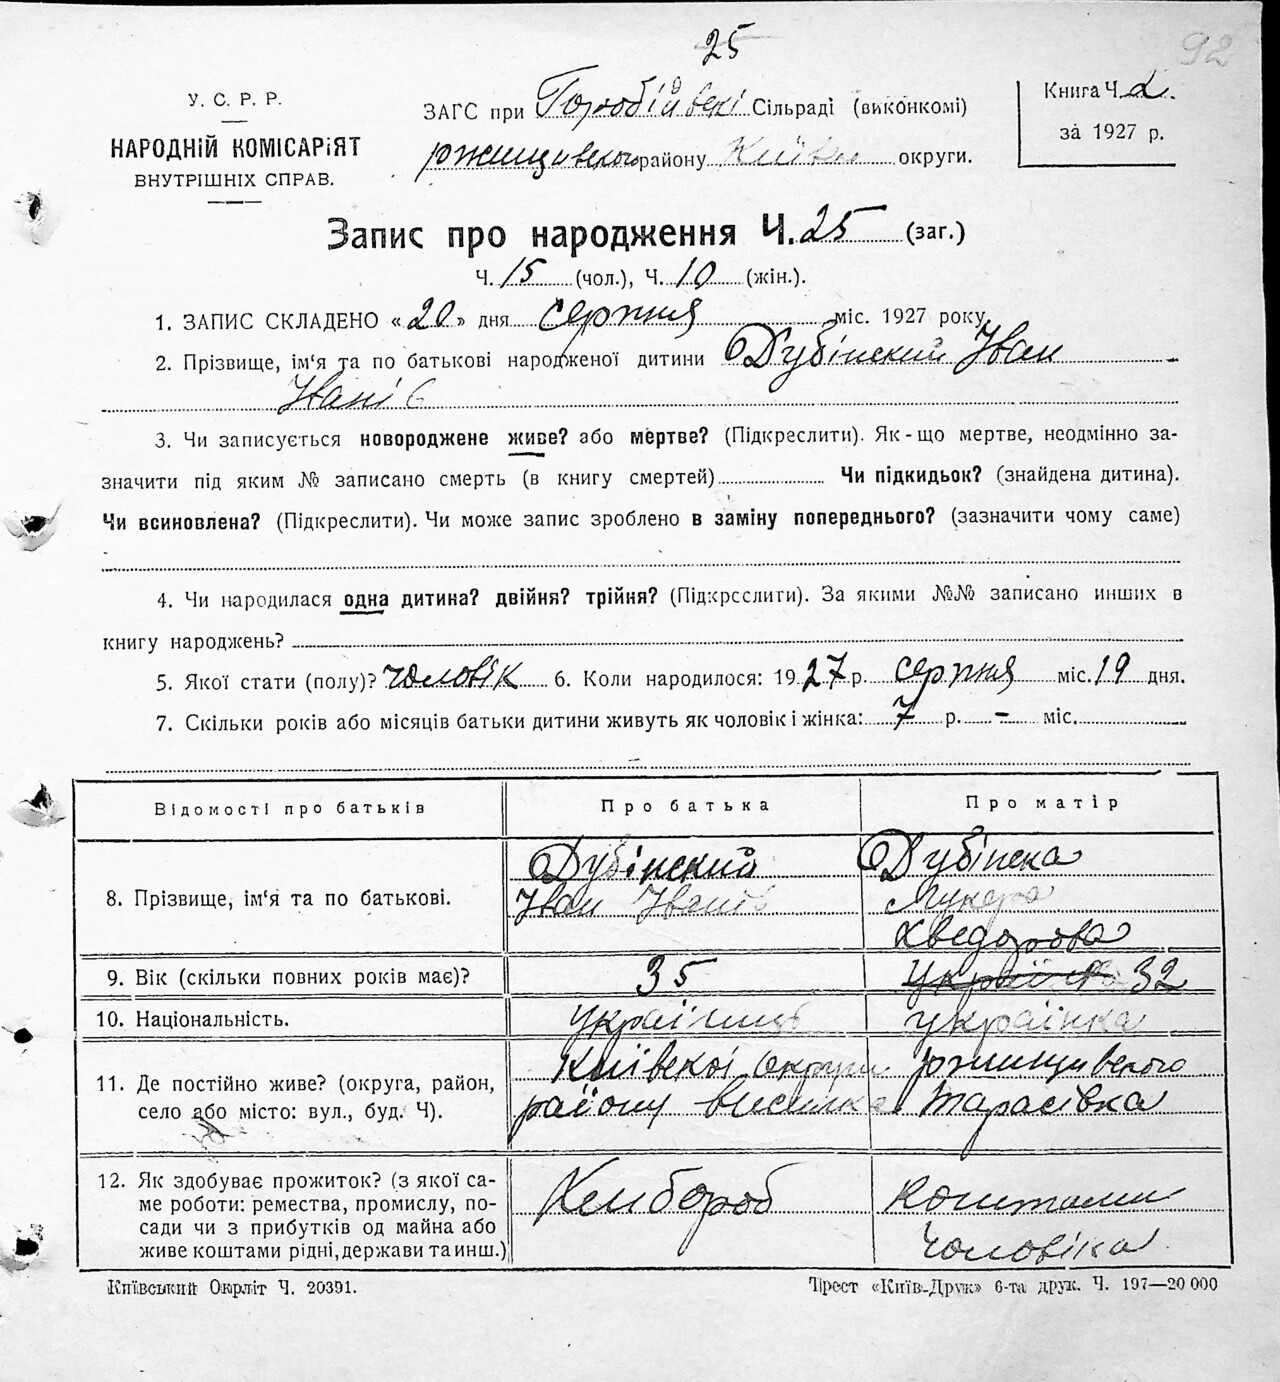 25
92
У. С. Р. Р.
НАРОДНІЙ КОМІСАРІЯТ
ВНУТРІШНІХ СПРАВ.
ЗАГС при Горобіївскі Сільраді (виконкомі)
ржищивского району Київск округи.
Книга Ч. 2.
за 1927 р.
Запис про народження Ч. 25 (заг.)
Ч. 15 (чол.), Ч. 10 (жін.).
1. ЗАПИС СКЛАДЕНО «20» дня серпня міс. 1927 року.
2. Прізвище, ім‘я та по батькові народженої дитини Дубінский Іван
Івані в
3. Чи записується новороджене живе? або мертве? (Підкреслити). Як-що мертве, неодмінно за-
значити під яким № записано смерть (в книгу смертей) Чи підкидьок? (знайдена дитина).
Чи всиновлена? (Підкреслити). Чи може запис зроблено в заміну попереднього? (зазначити чому саме)
4. Чи народилася одна дитина? двійня? трійня? (Підкреслити). За якими №№ записано инших в
книгу народжень?
5. Якої стати (полу)? чоловік 6. Коли народилося: 1927 р. серпня міс. 19 дня.
7. Скільки років або місяців батьки дитини живуть як чоловік і жінка: 7 р. – міс.
Відомості про батьків Про батька Про матір
8. Прізвище, ім‘я та по батькові.
Дубінский
Іван Іванів
Дубінска
Хведорова
9. Вік (скільки повних років має)? 35 32
10. Національність. українць українка
11. Де постійно живе? (округа, район,
село або місто: вул., буд. Ч).
Київскоі округи ржищивского
району висилка Тарасівка
12. Як здобуває прожиток? (з якої са-
ме роботи: ремества, промислу, по-
сади чи з прибутків од майна або
живе коштами рідні, держави та инш.)
Хлибороб
коштами
чоловіка
Київський Окрліт Ч. 20391.
Трест «Київ-Друк» 6-та друк. Ч. 197—20 000